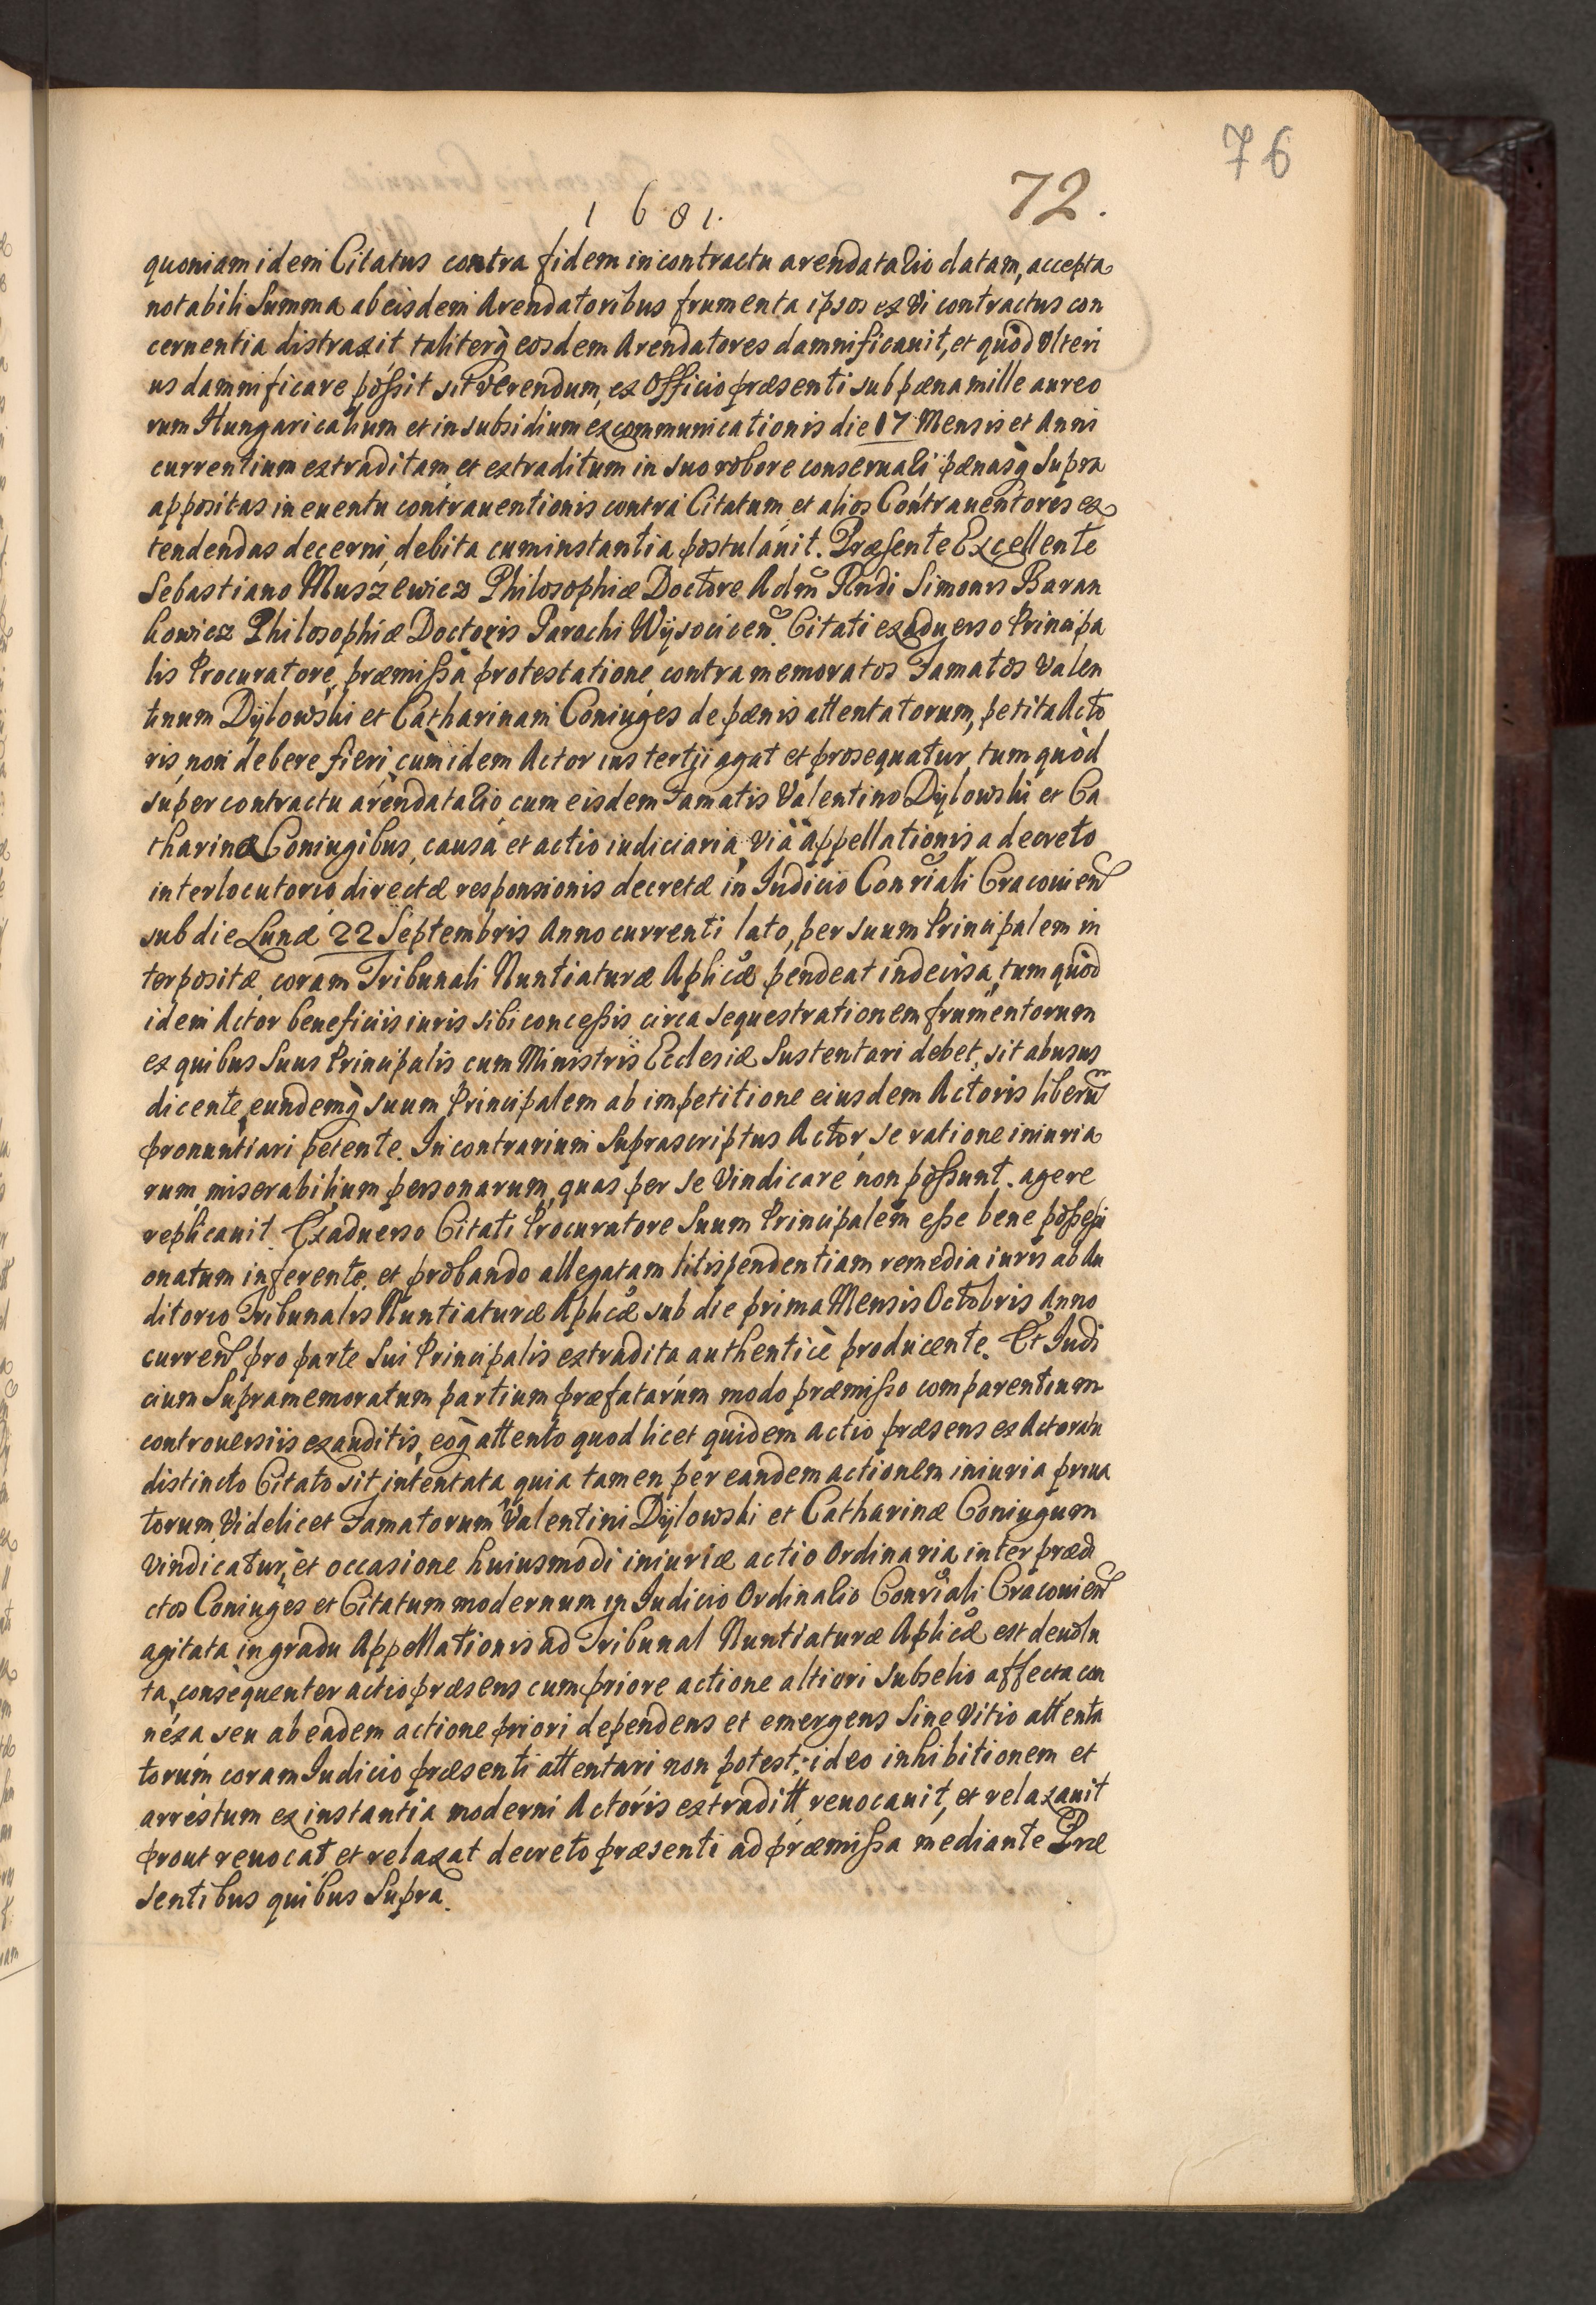 76
72.
1681.
quoniam idem Citatus contra fidem in contractu arendatalio datam, accepta
notabili Summa ab eisdem Arendatoribus frumenta ipsos ex vi contractus con
cernentia distraxit taliterq̀ eosdem Arendatores damnificauit, et quòd Vlteri
us damnificare poßit sit verendum, ex Officio præsenti sub pæna mille aureo
rum Hungaricalium et in subsidium excommunicationis die 17 Mensis et Anni
currentium extraditam et extraditum in suo robore conseruari pænasq̀ Supra
appositas in euentu contrauentionis contra Citatum et alios Contrauentores ex
tendendas decerni, debita cum instantia postulauit. Præsente Excellente
Sebastiano Muszewicz Philosophiæ Doctore Adm̃ Rndi Simonis Baran
kowicz Philosophiæ Doctoris Parochi Wÿsociceñ. Citati ex aduerso Principa
lis Procuratore, præmißa protestatione contra memoratos Famatos Valen
tinum Dÿlowski et Catharinam Coniuges de pænis attentatorum, petita Acto
ris non debere fieri cùm idem Actor ius tertÿ agat et prosequatur, tum quòd
super contractu arendatalio, cum eisdem Famatis Valentino Dÿlowski et Ca
tharina Coniugibus, causa et actio iudiciaria, viâ appellationis a decreto
interlocutorio directæ responsionis decretæ in Iudicio Consr̃iali Cracouien̄
sub die Lunæ 22 Septembris Anno currenti lato, per suum Principalem in
terpositæ, coram Tribunali Nuntiaturæ Aplicæ pendeat indecisa, tum quòd
idem Actor beneficiis iuris sibi conceßis circa sequestrationem frumentorum
ex quibus Suus Principalis cum Ministris Ecclesiæ Sustentari debet, sit abusus
dicente, eundemq̀ suum Principalem ab impetitione eiusdem Actoris liberum
pronuntiari petente. In contrarium Suprascriptus Actor, se ratione iniuria
rum miserabilium personarum, quas per se vindicare non poßunt. agere
replicauit. Ex aduerso Citati Procuratore Suum Principalem eße bene poßeßi
onatum inferente, et probando allegatam litispendentiam remedia iuris ab Au
ditorio Tribunalis Nuntiaturæ Aplicæ sub die prima Mensis Octobris Anno
curren̄ pro parte Sui Principalis extradita authenticè producente. Et Iudi
cium Supramemoratum partium præfatarum modo præmißo comparentium
controuersiis exauditis, eoq̀ attento quod licet quidem Actio præsens ex Actoratu
distincto Citato sit intentata, quia tamen per eandem actionem iniuria priua
torum videlicet Famatorum Valentini Dÿlowski et Catharinæ Coniugum
vindicatur, et occasione huiusmodi iniuriæ actio Ordinaria inter præd̃i
ctos Coniuges et Citatum modernum in Iudicio Ordinalio Consr̃iali Cracouien̄
agitata in gradu Appellationis ad Tribunal Nuntiaturæ Aplicæ est deuolu
ta, consequenter actio præsens cum priore actione altiori subselio affecta con
nexa seu ab eadem actione priori dependens et emergens Sine vitio attenta
torum coram Iudicio præsenti attentari non potest; ideo inhibitionem et
arrestum ex instantia moderni Actoris extraditt reuocauit, et relaxauit
prout reuocat et relaxat decreto præsenti ad præmißa mediante Præ
sentibus quibus Supra.